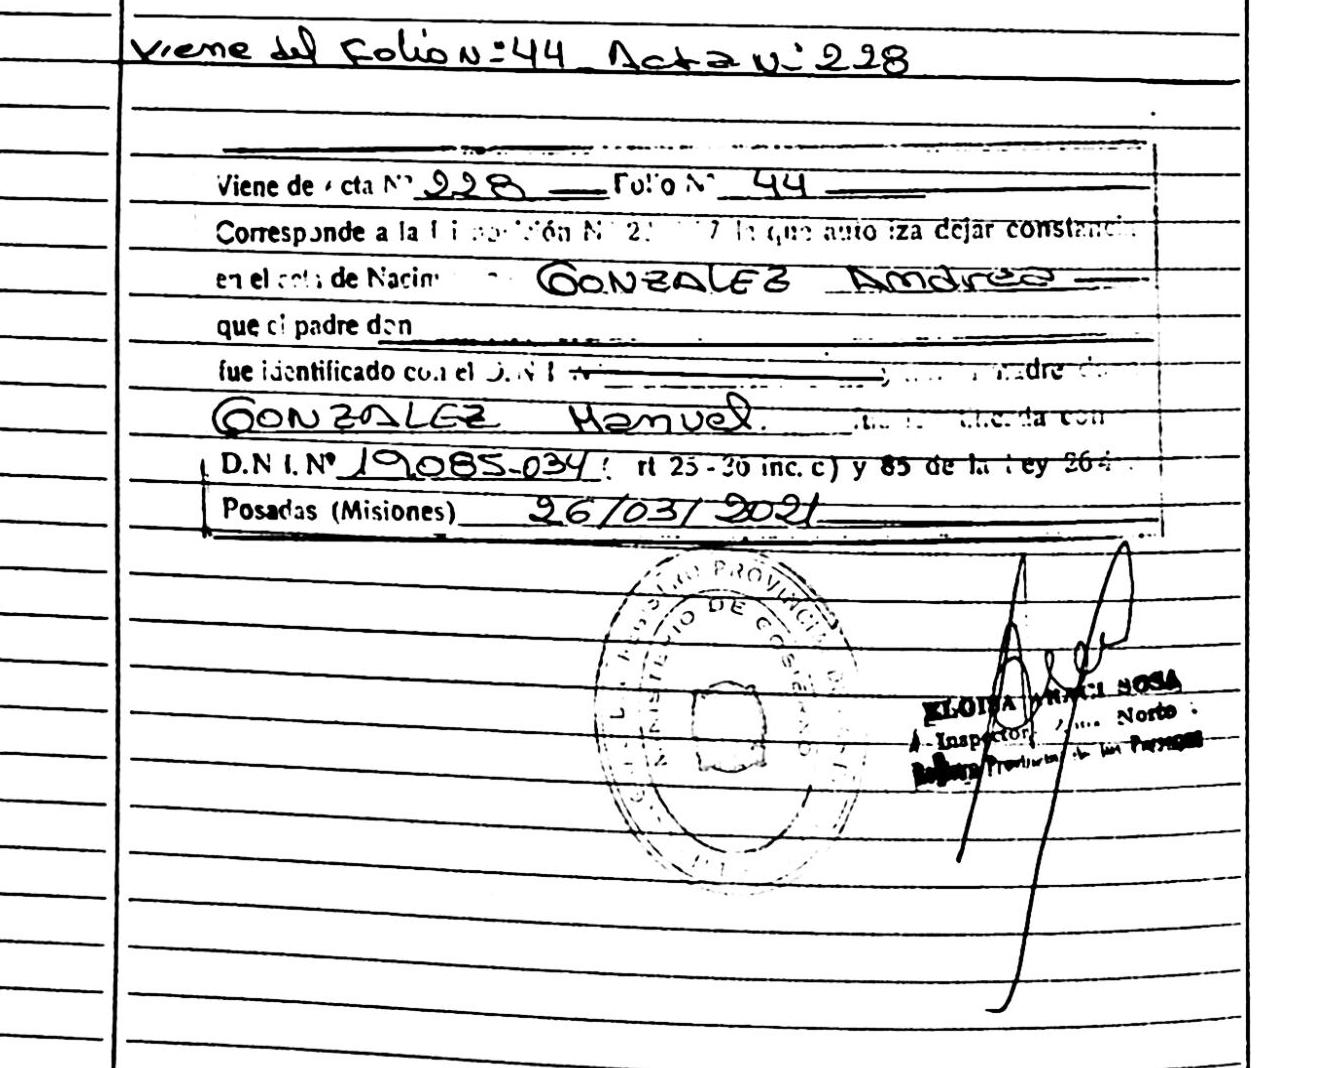 Viene del Folio Nº 44 Acta Nº 228
Viene de cta Nº 228 Folio Nº 44
Corresponde a la que dejar constanci
en el de Nacim GONZALEZ Andrea
que el padre don
fue identificado con el D.N.I
GONZALEZ Manuel. con
D.N.I. Nº 19085-034 rt 25-36 inc. c) y 85 de la Ley 264
Posadas (Misiones) 26/03/2021
REGISTRO PROVINCIAL
MINISTERIO DE GOBIERNO
ELOISA ARACI SOSA
Inspector Norte
Provincial de las Personas